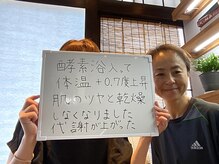 酵素浴入って
体温+0.7度上昇
肌のツヤと乾燥
しなくなりました
代謝が上がった